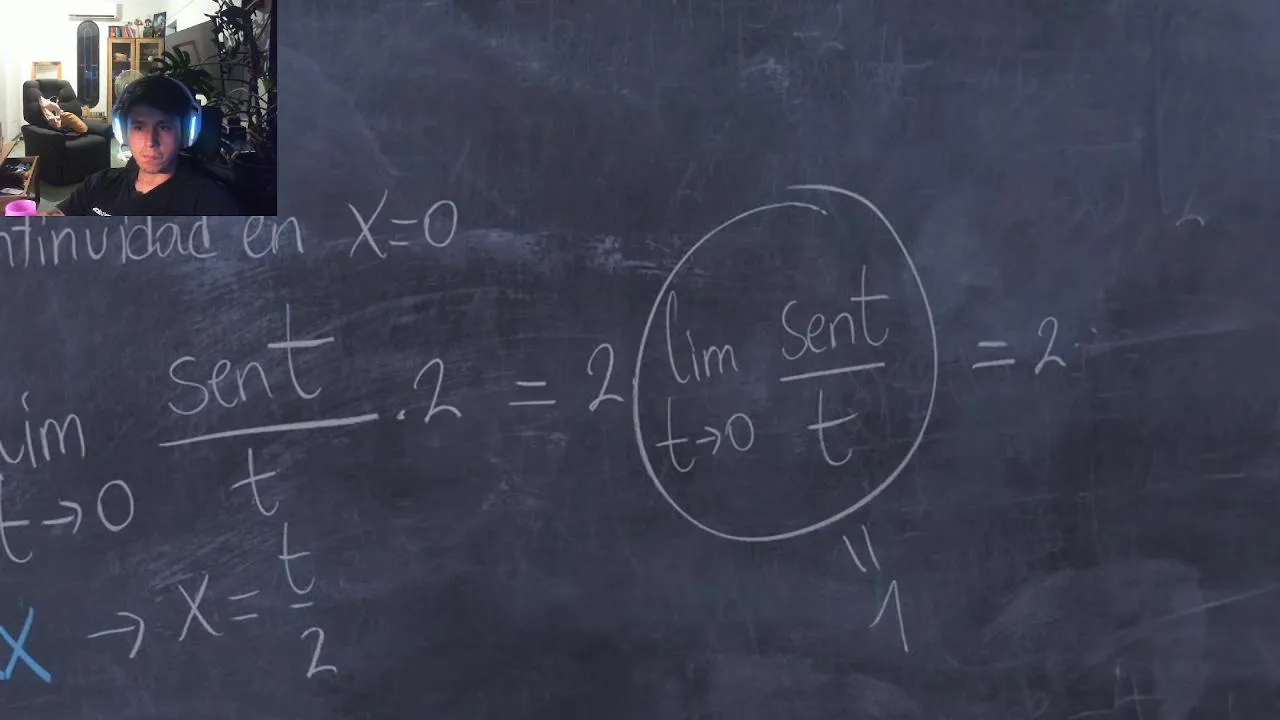 ntinuidad en x=0
lim sent/t . 2 = 2 lim sent/t = 2
t→0 t→0
" 1
x → x = t/2